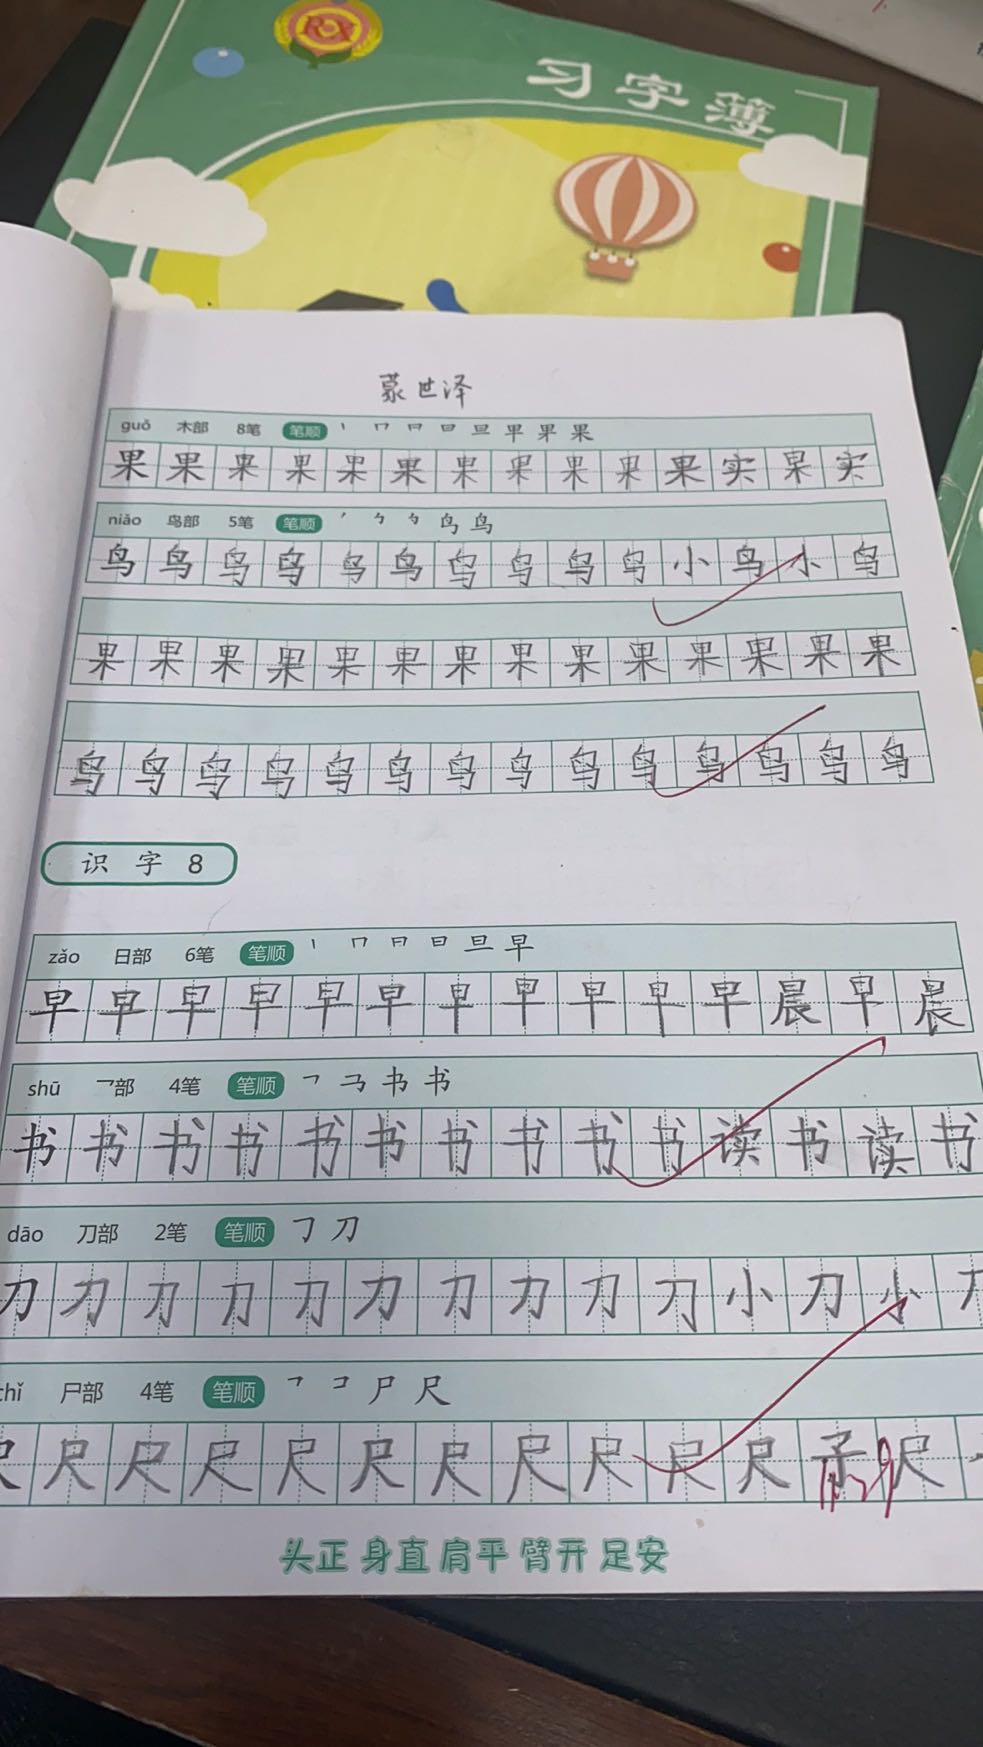 习字薄
蒙世泽
guǒ 木部 8笔 笔顺 丨 冂 日 旦 早 果 果
果 果 果 果 果 果 果 果 果 果 果 实 果 实
niǎo 鸟部 5笔 笔顺 鸟 鸟
鸟 鸟 鸟 鸟 鸟 鸟 鸟 鸟 鸟 鸟 小 鸟 小 鸟
果 果 果 果 果 果 果 果 果 果 果 果 果 果
鸟 鸟 鸟 鸟 鸟 鸟 鸟 鸟 鸟 鸟 鸟 鸟 鸟 鸟
识字 8
zǎo 日部 6笔 笔顺 丨 冂 日 日 旦 早
早 早 早 早 早 早 早 早 早 早 早 晨 早 晨
shū 乛部 4笔 笔顺 乛 书 书
书 书 书 书 书 书 书 书 书 书 读 书 读 书
dāo 刀部 2笔 笔顺 ㇆ 刀
刀 刀 刀 刀 刀 刀 刀 刀 刀 刀 小 刀 小 刀
chǐ 尸部 4笔 笔顺 乛 コ 尸 尺
尺 尺 尺 尺 尺 尺 尺 尺 尺 尺 尺 尺
头正 身直 肩平 臂开 足安